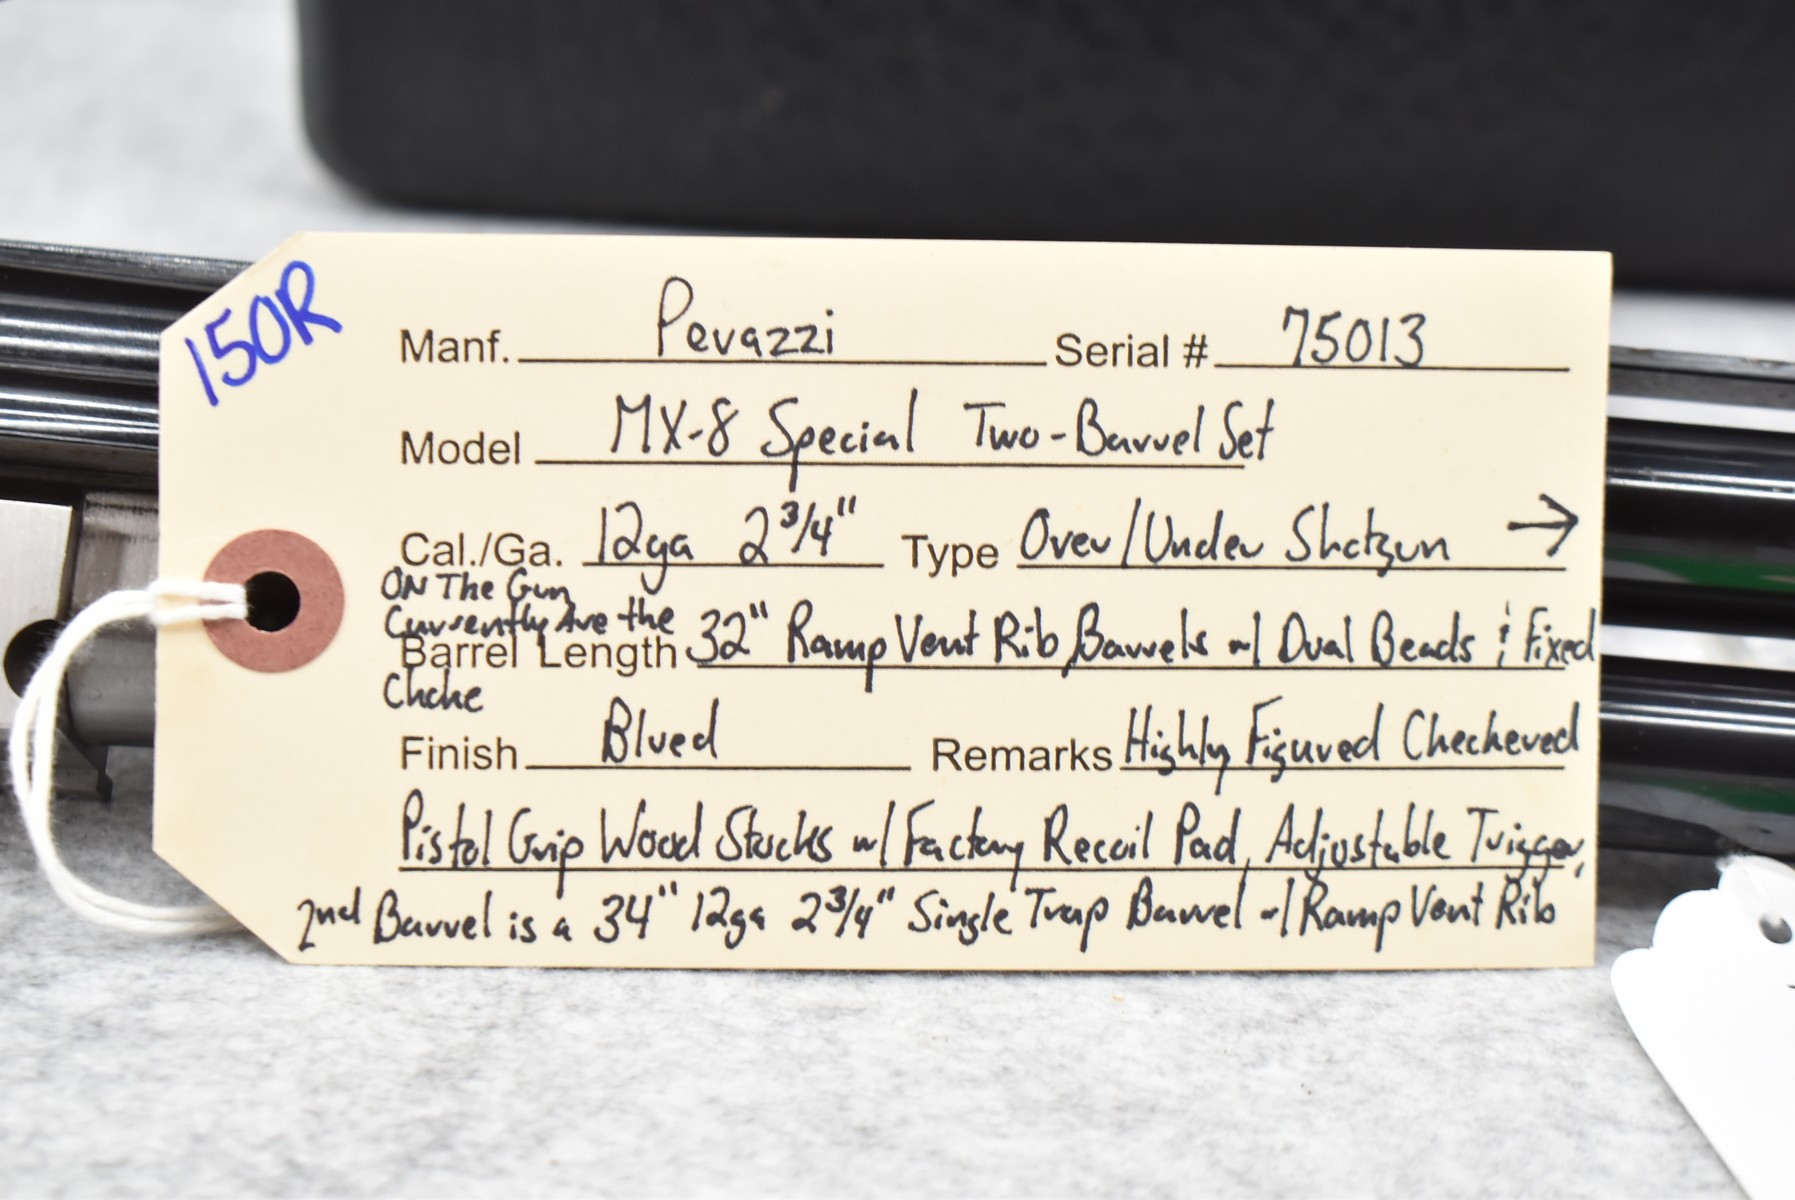 150R
Manf. Perazzi Serial # 75013
Model MX-8 Special Two-Barrel Set
Cal./Ga. 12ga 2 3/4" Type Over/Under Shotgun →
ON The Gun
Currently Are the
Barrel Length 32" Ramp Vent Rib Barrels w/ Dual Beads & Fixed
Choke
Finish Blued Remarks Highly Figured Checkered
Pistol Grip Wood Stocks w/ Factory Recoil Pad, Adjustable Trigger,
2nd Barrel is a 34" 12ga 2 3/4" Single Trap Barrel w/ Ramp Vent Rib